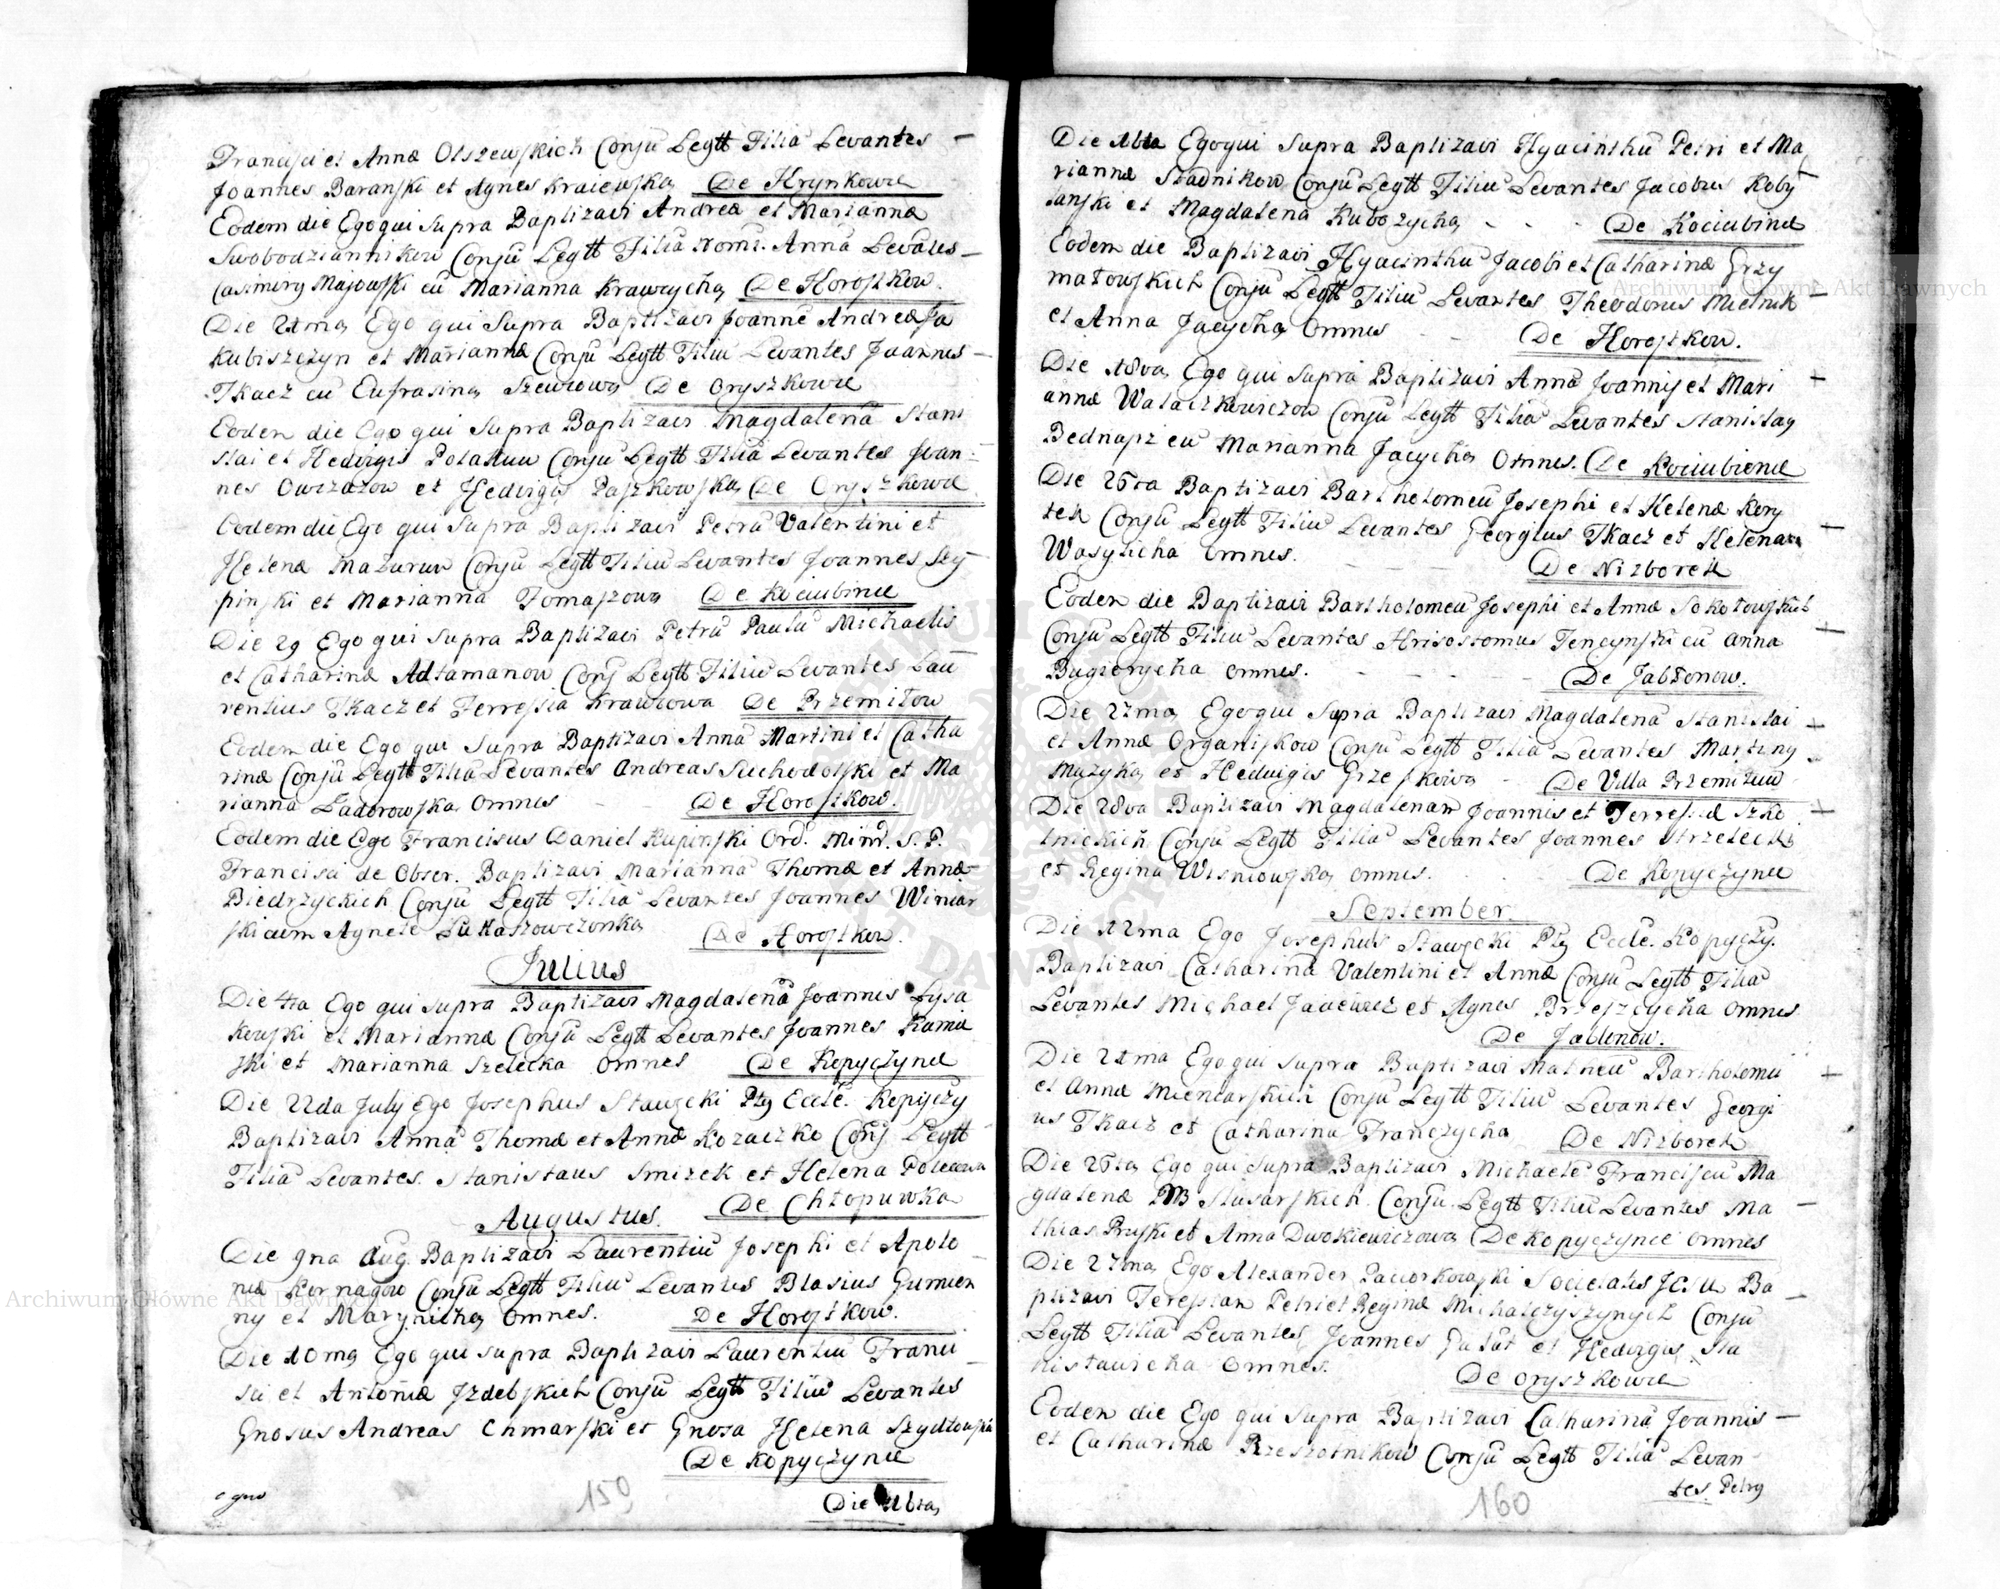 Francisci et Annæ Olszewskich Conju Legtt Filia Levantes —
Joannes Baranski et Agnes Kraiewska De Hrynkowce
Eodem die Ego qui supra Baptizavi Andreæ et Mariannæ
Swobodziannikow Conju Legtt Filia Nomi. Anna Levates —
Casimirg Majowski cu Marianna Krawczycha De Horostkow.
Die 21ma Ego qui Supra Baptizavi Joanne Andreæ Ja
kubiszczyn et Mariannæ Conju Legtt Filiu Levantes Joannes —
Tkacz cu Eufrasina Szewcowa De Oryszkowce
Eodem die Ego qui Supra Baptizavi Magdalena Stani
slai et Hedvigis Polakuw Conju Legtt Filia Levantes Joan-
nes Owczazow et Hedvigis Paszkowska De Oryszkowce
Eodem die Ego qui Supra Baptizavi Petru Valentini et
Helenæ Mazuruw Conju Legtt Filiu Levantes Joannes Szy
pinski et Marianna Tomaszowa De Kociubince
Die 29 Ego qui supra Baptizavi Petru Paulu Michaelis
et Catharinæ Adtamanow Conj Legtt Filiu Levantes Lau
rentius Tkacz et Terresia Krawcowa De Przemiłow
Eodem die Ego qui Supra Baptizavi Anna Martini et Catha
rinæ Conju Legtt Filia Levantes Andreas Suchodolski et Ma
rianna Zadorowska Omnes De Horostkow.
Eodem die Ego Franciscus Daniel Kupinski Ord. Mind. S. P.
Francisci de Obser. Baptizavi Marianna Thomæ et Annæ
Biedrzyckich Conju Legtt Filia Levantes Joannes Winiar
ski cum Agnete Lukaszowczonka De Horostkow.
Julius
Die 4ta Ego qui supra Baptizavi Magdalena Joannis Łysa
kowski et Mariannæ Conju Legtt Levantes Joannes Kamie
ski et Marianna Szelecka Omnes De Kopyczynce
Die 22da July Ego Josephus Stawecki Ptg Eccle. Kopyczy
Baptizavi Anna Thomæ et Annæ Kozaczko Conj. Legtt
Filia Levantes. Stanislaus Smizek et Helena
De Chłopuwka
Augustus.
Die 9na Aug. Baptizavi Laurentiu Josephi et Apolo
niæ Kornagow Conju Legtt Filiu Levantes Blasius Gumien
ny et Marynicha Omnes. De Horostkow.
Die 10ma Ego qui supra Baptizavi Laurentiu Franci
sci et Antoniæ Jzdebskich Conju Legtt Filiu Levantes
Gnosus Andreas Chmarski et Gnosa Helena Szydłowska
De Kopyczynce
159
Die 16ta
Die 16ta Ego qui Supra Baptizavi Hyacinthu Petri et Ma
riannæ Stadnikow Conju Legtt Filiu Levantes Jacobus Koby
lanski et Magdalena Kubozycha - - - De Kociubince
Eodem die Baptizavi Hyacinthu Jacobi et Catharinæ Grzy
małowskich Conju Legtt Filiu Levantes Theodorus Mielnik —
et Anna Jacycha Omnes - - De Horostkow.
Die 18va Ego qui Supra Baptizavi Anna Joannis et Mari +
annæ Walaszkowiczow Conju Legtt Filia Levantes Stanislag
Bednarz cu Marianna Jacycha Omnes. De Kociubience
Die 25ta Baptizavi Bartholomeu Josephi et Helenæ Kory
tek Conju Legtt Filiu Levantes Georgius Tkacz et Helena —
Wasylicha Omnes. - - - De Nizborek
Eodem die Baptizavi Bartholomeu Josephi et Annæ Sokołowskich
Conju Legtt Filiu Levantes Hrisostomus Tenczynski cu Anna +
Bugierycha Omnes. - - - De Jabłonow.
Die 27ma Ego qui Supra Baptizavi Magdalena Stanislai +
et Annæ Organiskow Conju Legtt Filia Levantes Marting
Muzyka et Hedvigis Grzeskowa - De Villa Przemiłuw
Die 28va Baptizavi Magdalenam Joannis et Terresiæ Szko +
lnickich Conju Legtt Filia Levantes Joannes Strzelecki
et Regina Wisniowska Omnes. De Kopyczynce
September.
Die 12ma Ego Josephus Stawecki Ptg Eccle. Kopyczy.
Baptizavi Catharina Valentini et Annæ Conju Legtt Filia
Levantes Michael Jacewicz et Agnes Brzeszczycha Omnes
De Jablonow.
Die 21ma Ego qui supra Baptizavi Matheu Bartholomei +
et Annæ Mientarskich Conju Legtt Filiu Levantes Georgi
us Tkacz et Catharina Franczycha De Nizborek
Die 25ta Ego qui Supra Baptizavi Michaele Franciscu Ma
gdalenæ Slusarskich Conju Legtt Filiu Levantes Ma —
thias Pruski et Anna Dwokiewiczowa De Kopyczynce Omnes
Die 27ma Ego Alexander Paciorkowski Societatis JESU Ba —
ptizavi Teressiam Petri et Reginæ Michalczyszynych Conju
Legtt Filia Levantes Joannes Gułat et Hedvigis Sta
nislaucha Omnes.
De Oryszkowce
Eodem die Ego qui supra Baptizavi Catharina Joannis —
et Catharinæ Rzeszotnikow Conju Legtt Filia Levan
tes Petrg
160
Archiwum Główne Akt Dawnych
Archiwum Główne Akt Dawnych